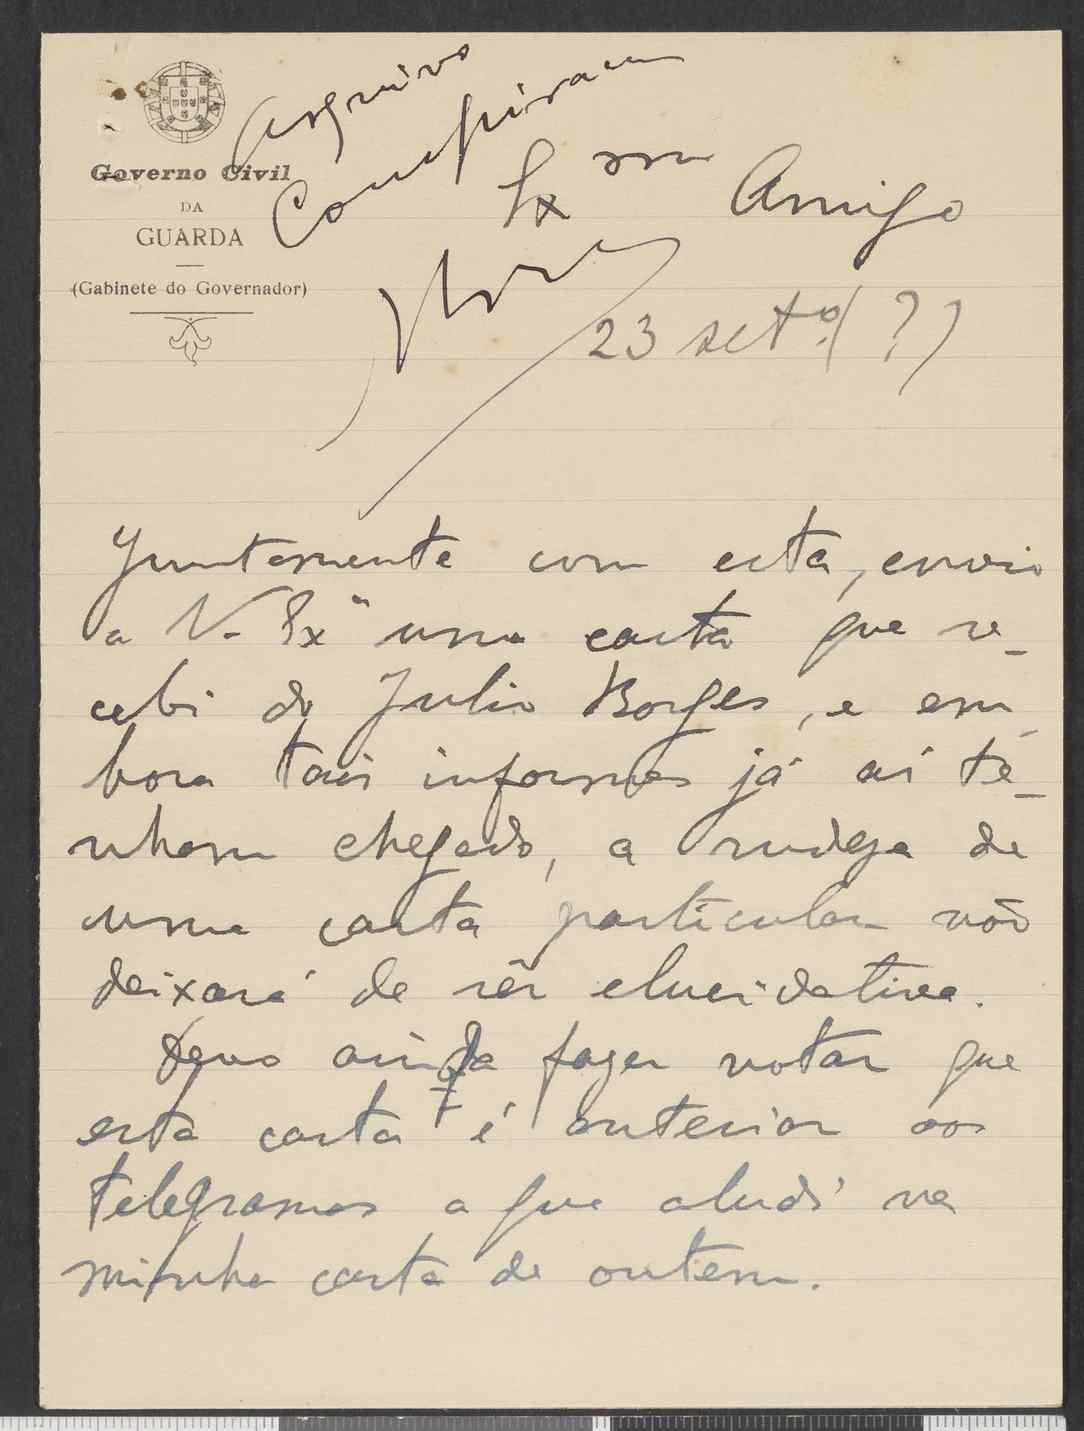 Governo Civil
DA
GUARDA
(Gabinete do Governador)
Arquivo
Conspiração
Ex mo Amigo
23 set.º (?)
Juntamente com esta, envio
a V. Exª uma carta que re-
cebi do Julio Borges, e em-
bora tais informes já aí te-
nham chegado, a rudeza de
uma carta particular não
deixará de sêr elucidativa.
Devo ainda fazer notar que
esta carta é anterior aos
telegramas a que aludi na
minha carta de ontem.